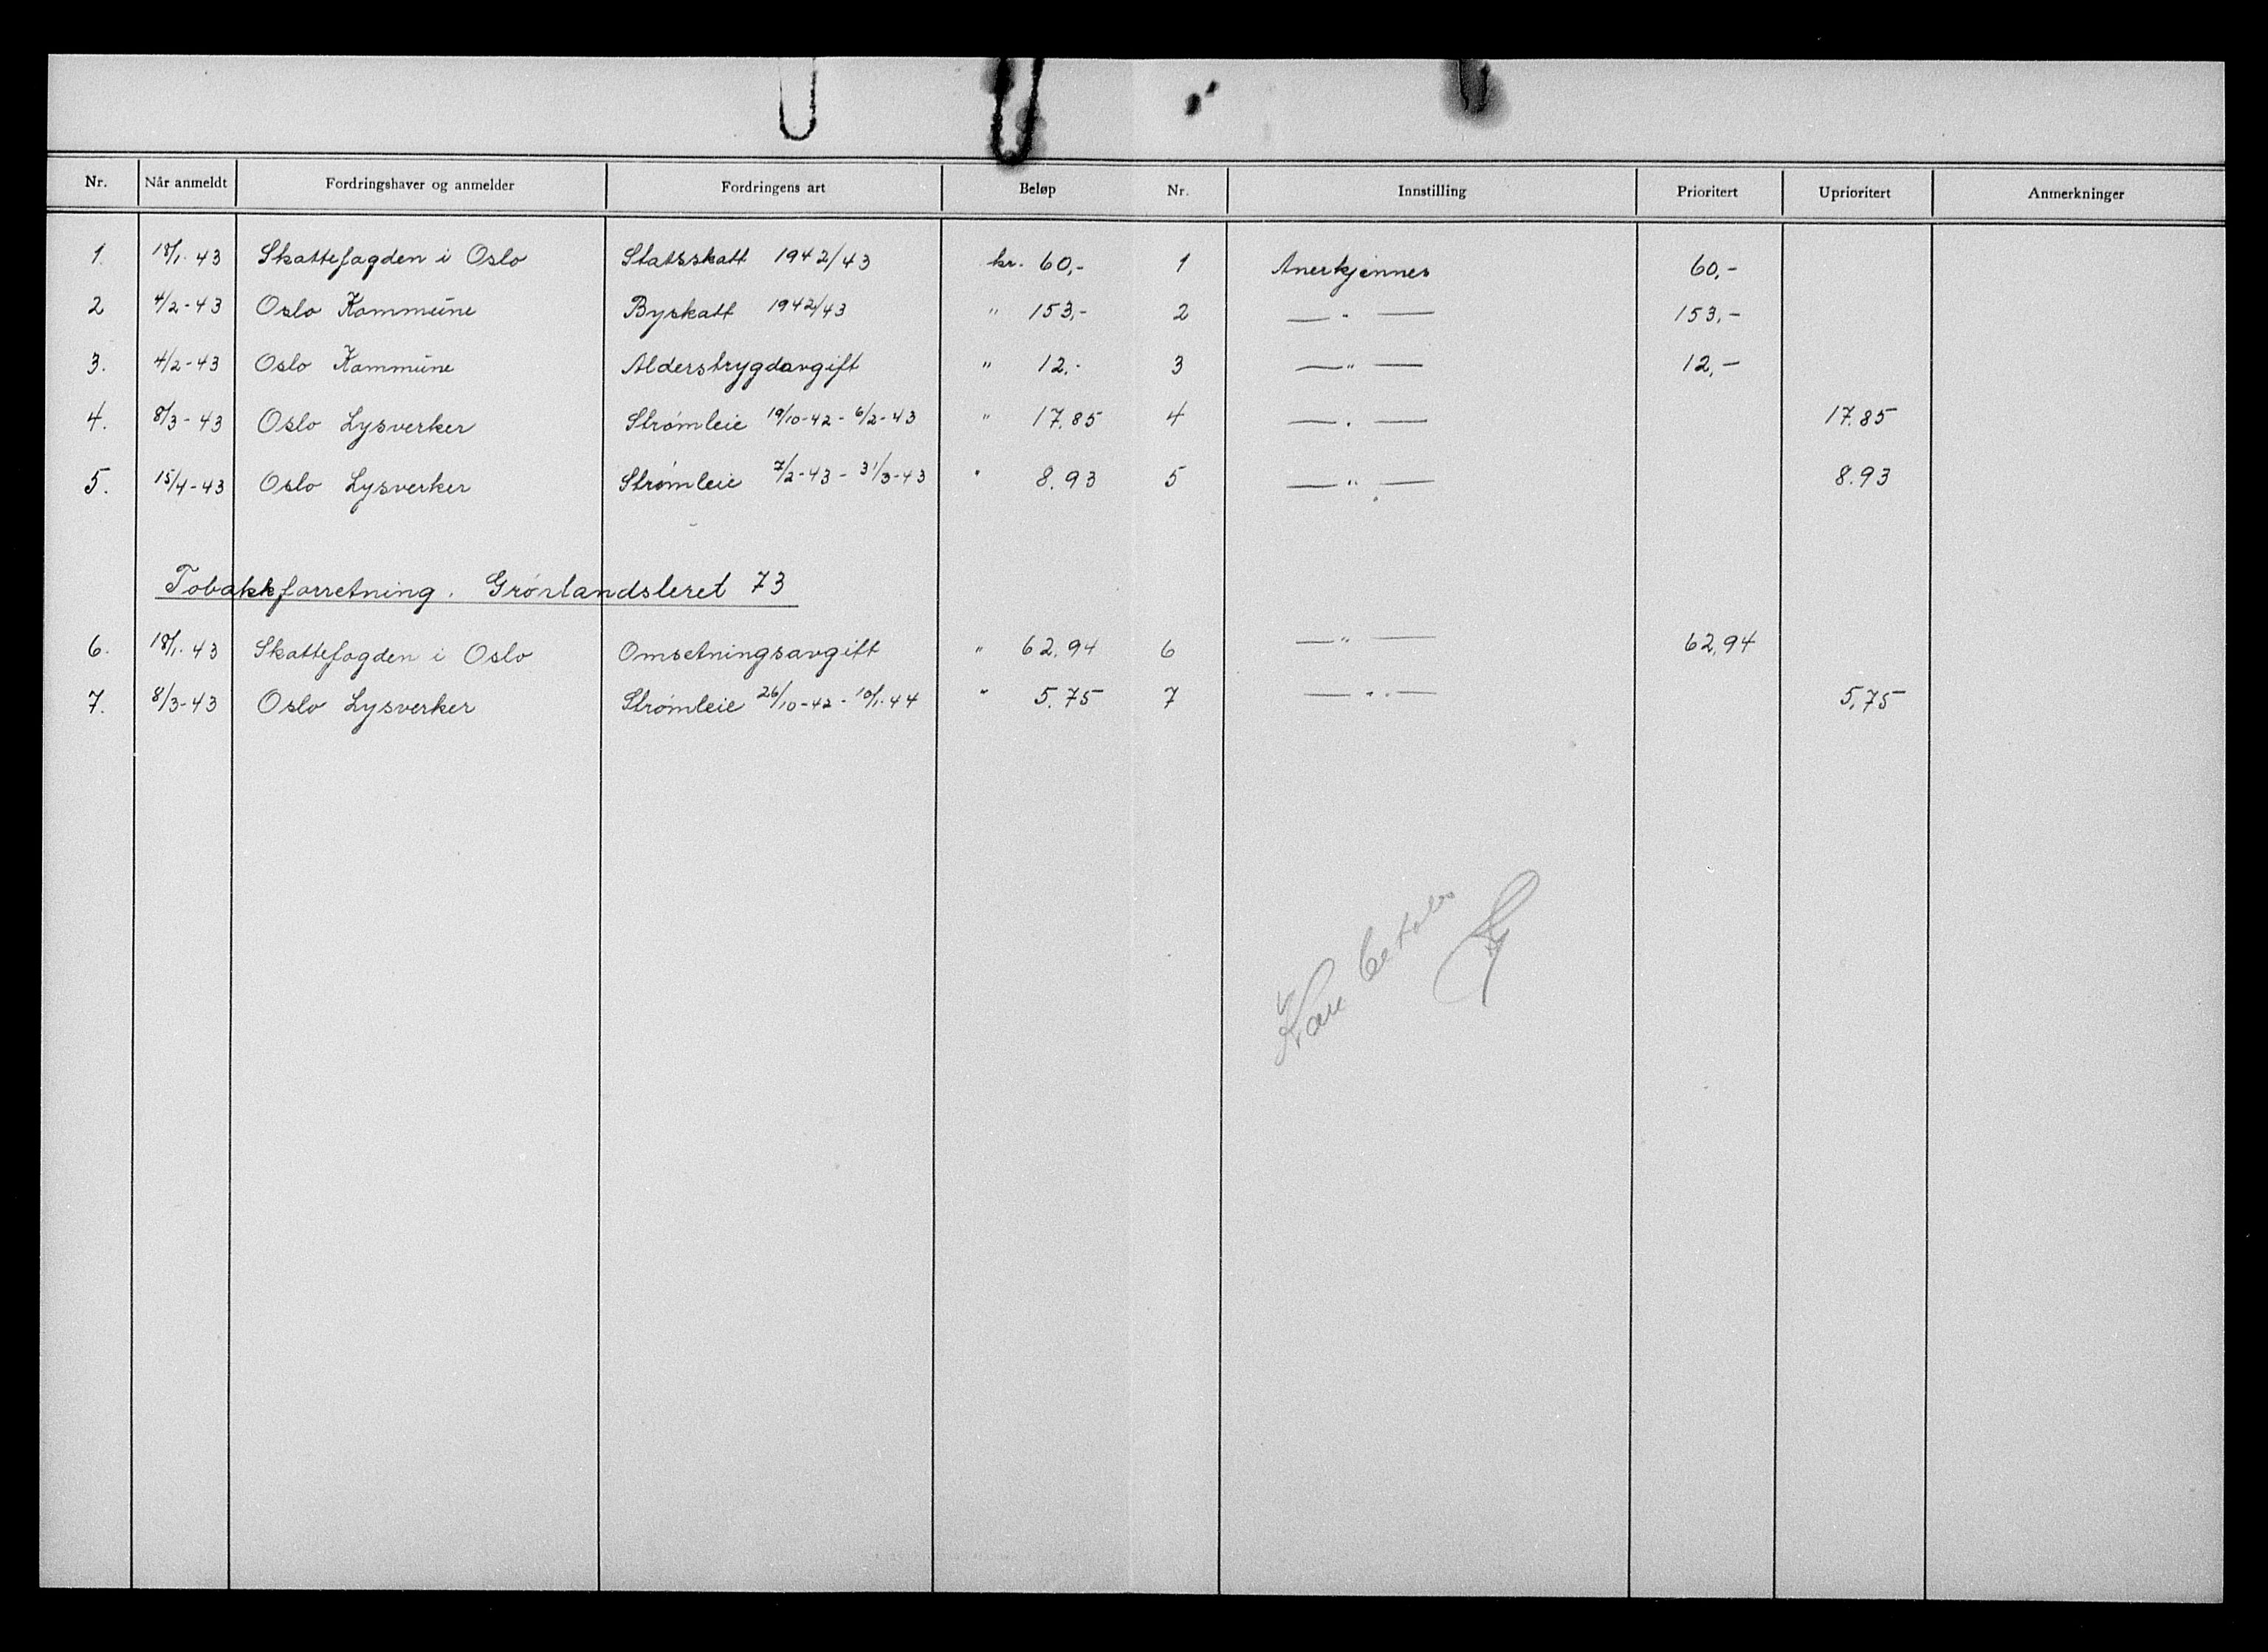 Nr. Når anmeldt Fordringshaver og anmelder Fordringens art Beløp Nr. Innstilling Prioritert Uprioritert Anmerkninger
1. 18/1-43 Skattefogden i Oslo Statsskatt 1942/43 kr. 60,- 1 Anerkjennes 60,-
2 4/2-43 Oslo Kommune Byskatt 1942/43 " 153,- 2 — " — 153,-
3. 4/2-43 Oslo Kommune Alderstrygdavgift " 12.- 3 — " — 12,-
4. 8/3-43 Oslo Lysverker Strømleie 19/10-42 - 6/2-43 " 17.85 4 — " — 17.85
5. 15/4-43 Oslo Lysverker Strømleie 7/2-43 - 31/3-43 " 8.93 5 — " — 8.93
Tobakkforretning. Grønlandsleret 73
6. 18/1-43 Skattefogden i Oslo Omsetningsavgift " 62.94 6 — " — 62,94
7. 8/3-43 Oslo Lysverker Strømleie 26/10-42 - 10/1-44 " 5.75 7 — " — 5,75
Kan betales